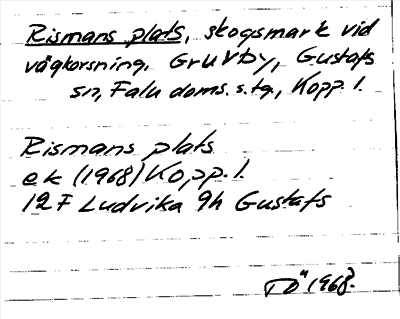 Rismans plats, skogsmark vid
vägkorsning, Gruvby, Gustafs
sn, Falu doms. s. tg., Kopp. l.
Rismans plats
ek (1968) Kopp. l.
12F Ludvika 9h Gustafs
TÖ 1968.